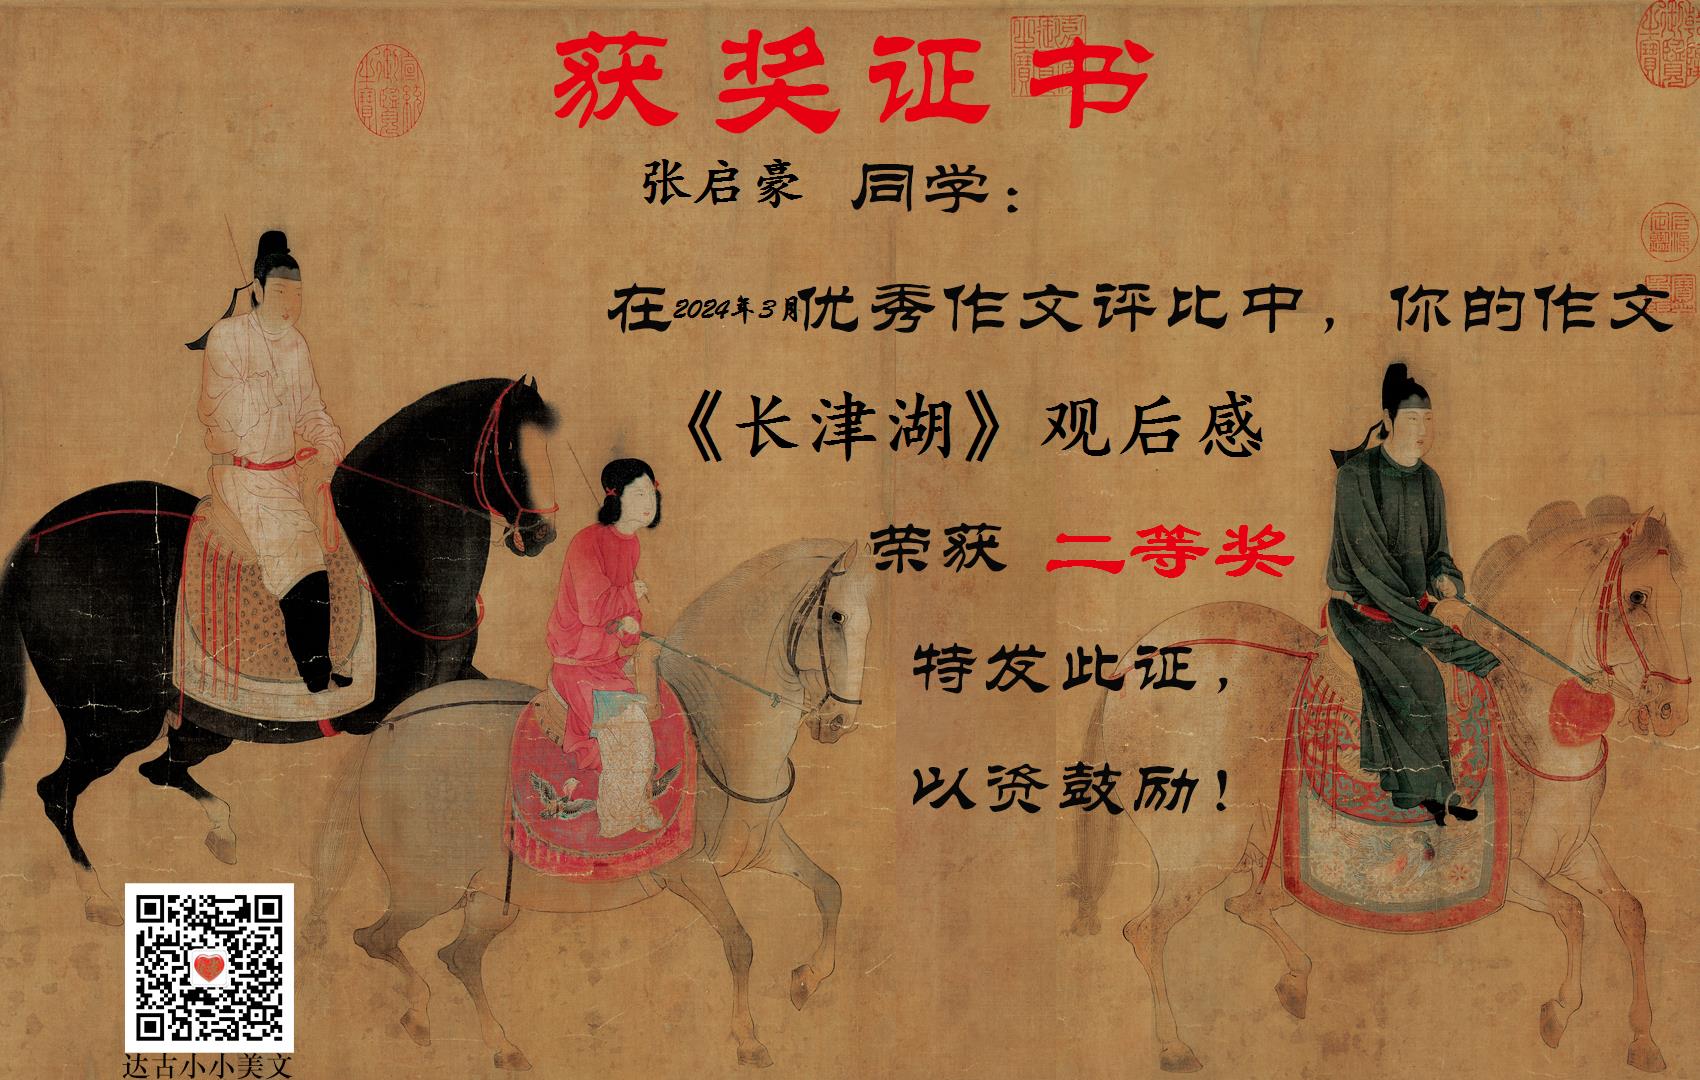 获奖证书
张启豪 同学：
在2024年3月优秀作文评比中，你的作文
《长津湖》观后感
荣获 二等奖
特发此证，
以资鼓励！
达古小小美文